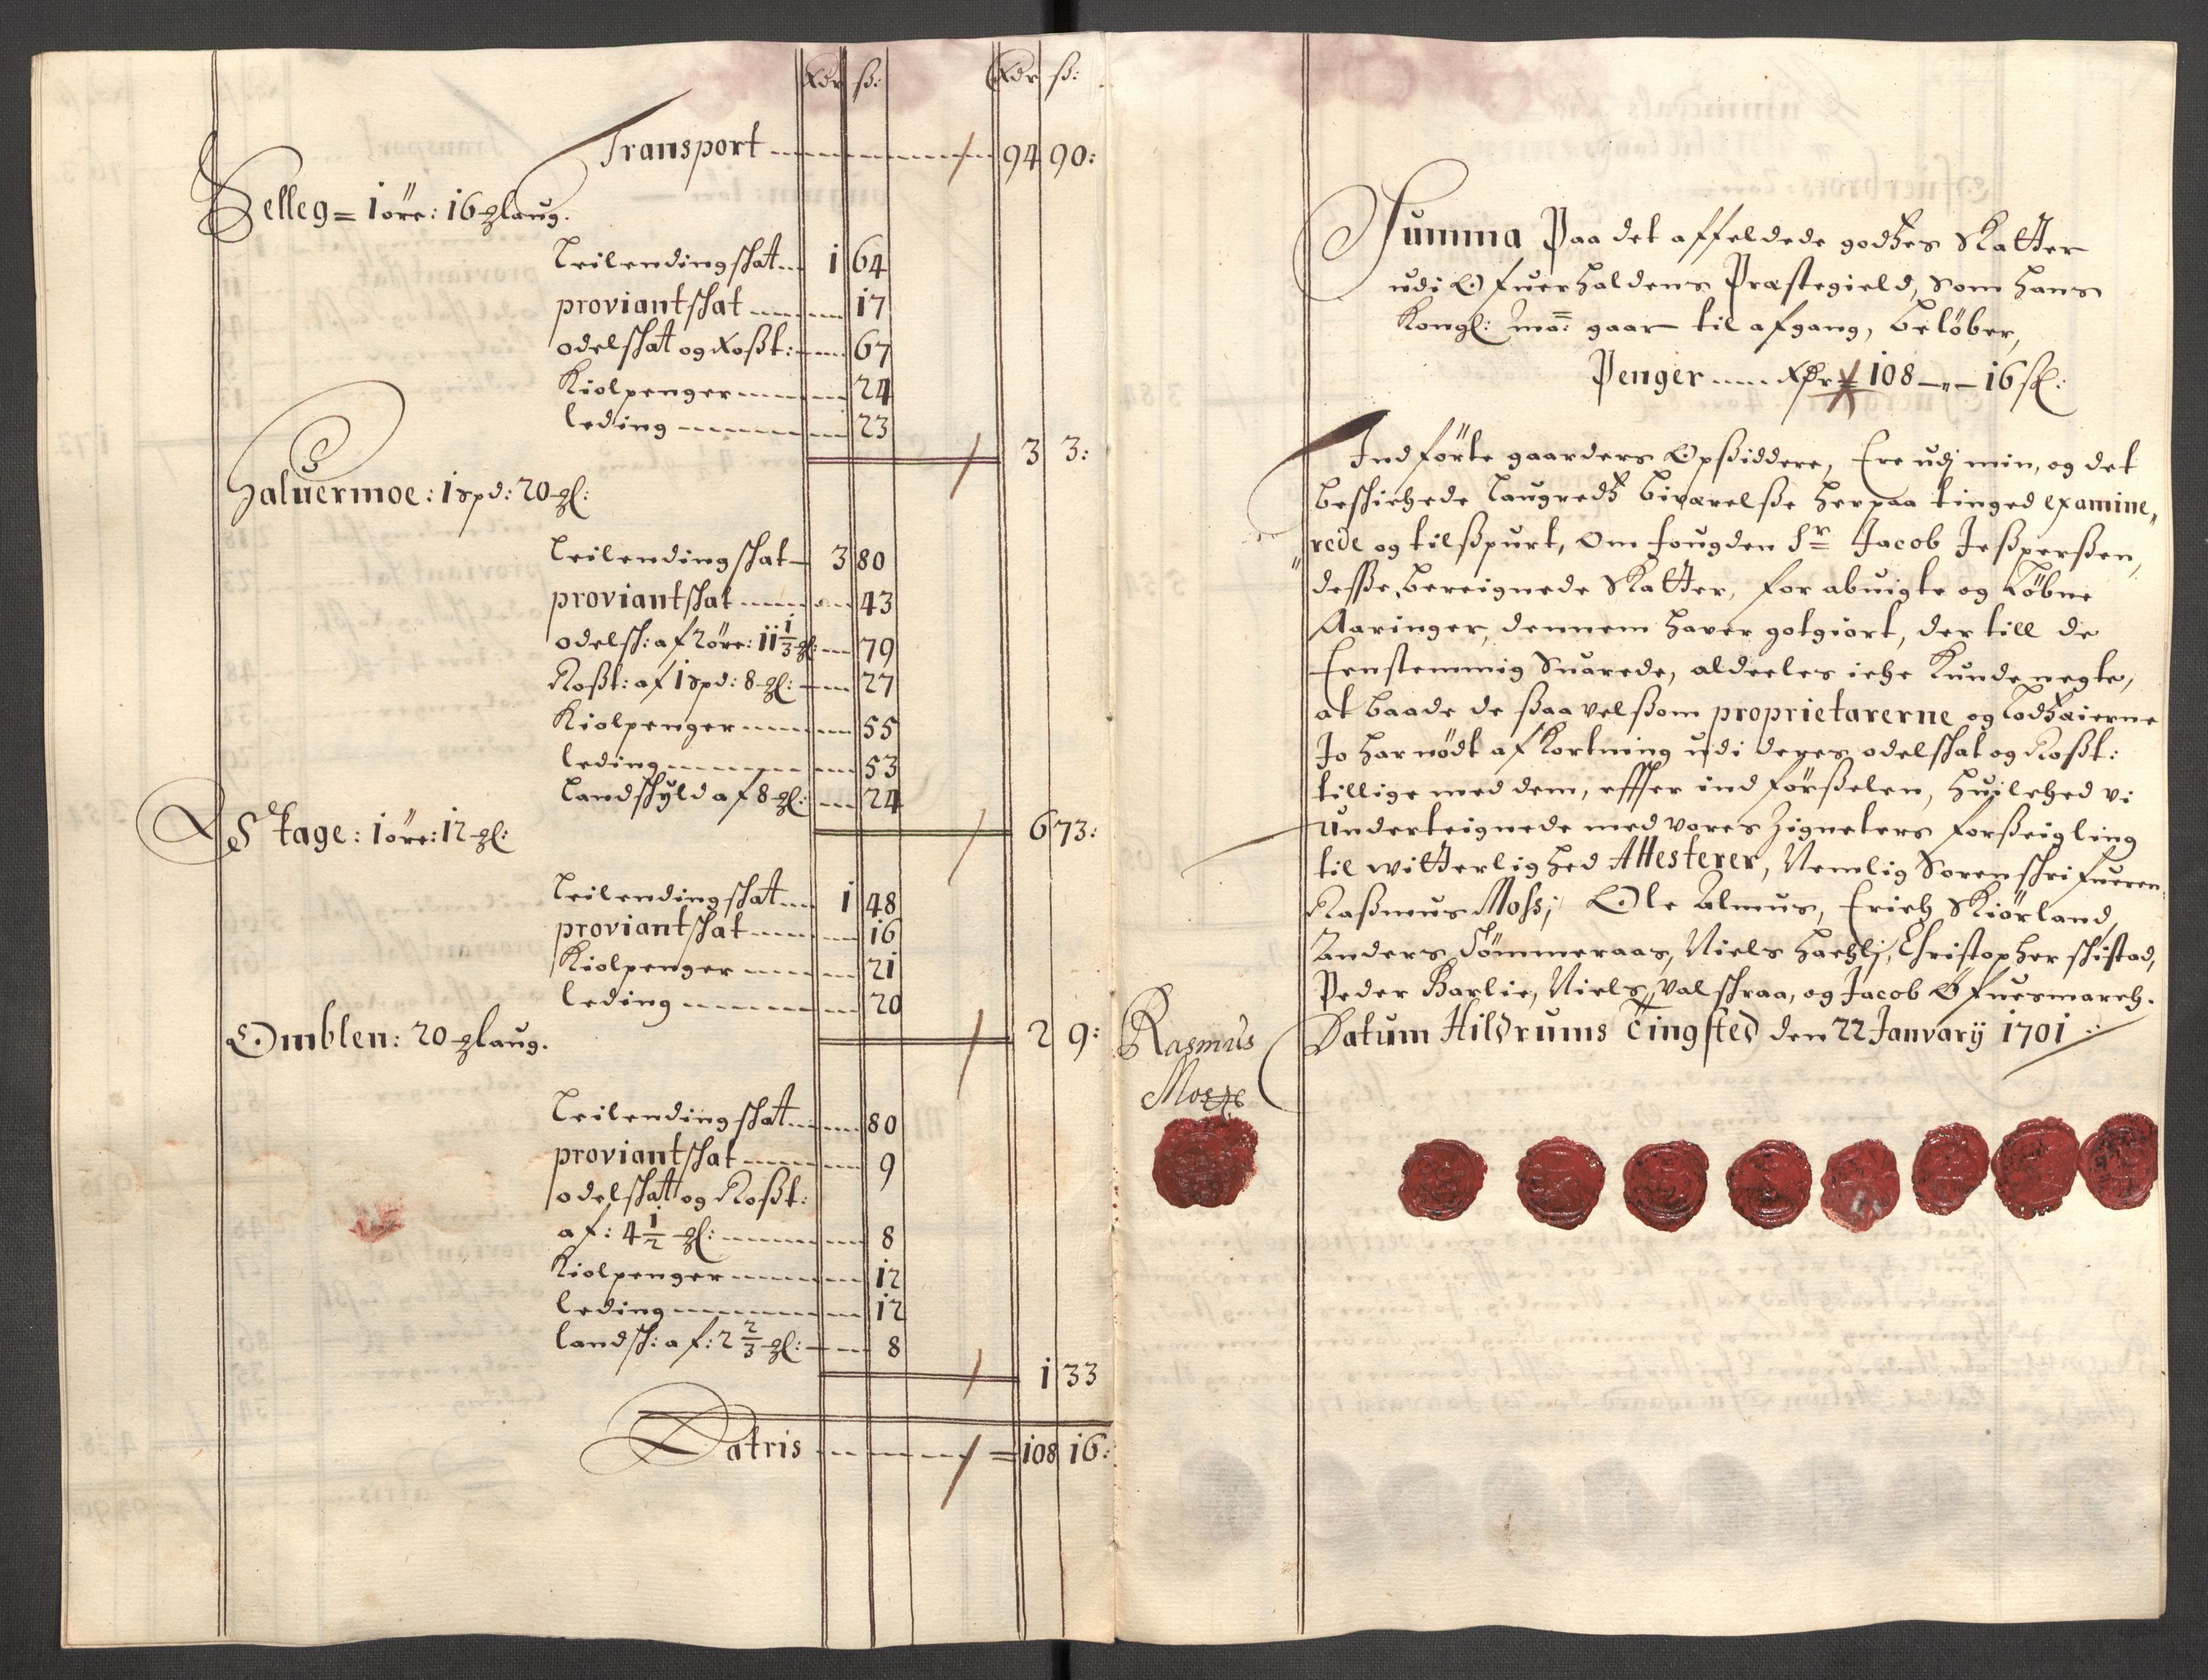 Rdr ß: Rdr ß:
Transport 94 90:
Selleg = 1 øre: 16 mklaug.
Leilendingschat 1 64
proviantschat 17
odelschat og Roßt: 67
Kiolpenger 24
leding 23
3 3:
Haluermoe: 1 spd: 20 mkl:
Leilendingschat 3 80
proviantschat 43
odelsch: af 2 øre: 11 1/3 mkl: 79
Roßt: af 1 spd: 8 mkl: 27
Kiolpenger 55
leding 53
Landschyld af 8 mkl: 24
6 73:
Stage: 1 øre: 12 mkl:
Leilendingschat 1 48
proviantschat 16
Kiolpenger 21
leding 20
2 9:
Omblen: 20 mklaug.
Leilendingschat 80
proviantschat 9
odelschatt og Roßt:
af: 4 1/2 mkl: 8
Kiolpenger 12
leding 12
landsch: af: 2 2/3 mkl: 8
1 33
Latris = 108 16:
Summa Paa det affeldede godtzes Skatter
udi Ofuerhaldens Præstegield, som hans
Kongl: Ma: gaar til afgang, beløber,
Penger Rdr 108 - " - 16 sl:
Indførte gaarders Opsiddere, Ere udj min, og det
beschichede Laugredtz biværelße her paa tinged examine,,
,,rede og tilßpurt, Om fougden Sr Jacob Jeßperßen,
deße, bereignede Skatter, for abuigte og Løbne
Aaringer, dennem haver gotgiort, der till de
Eenstemmig Suarede, aldeeles iche Kunde negte,
at baade de ßaavelßom proprietarerne og Lodtzeierne
Jo har nødt afkortning udi deres odelschat og Roßt:
tillige med dem, effter indførßelen, huilched vi
underteignede med vores Zigneters forßeigling
til witterlighed Attesterer, Nemlig Sorenschrifueren
Raßmus Moss; Ole Almus, Erich Skiørland,
Anders Tømmeraas, Niels Hachlj, Christopher schistad,
Peder Barlie, Niels Valschraa, og Jacob Øfuesmarch.
Datum Hildrums Tingsted den 22 Januarij 1701
Rasmus
Mosse